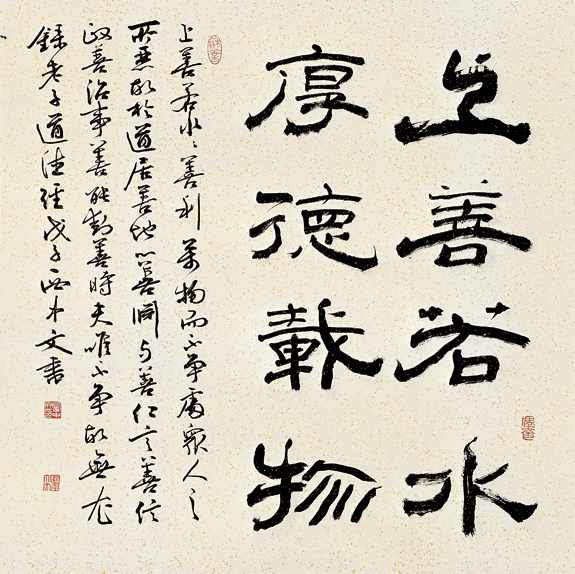 上善若水
厚德載物
上善若水〻善利萬物而不争處衆人之
所惡故於道居善地心善淵与善仁言善信
政善治事善能動善時夫唯不争故無尤
錄老子道德經戊子文書